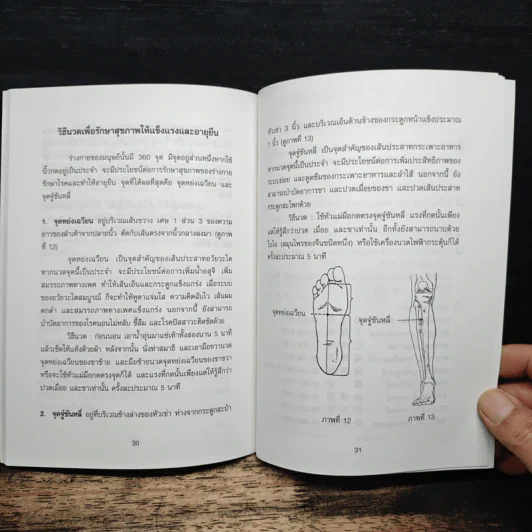 วิธีนวดเพื่อรักษาสุขภาพให้แข็งแรงและอายุยืน
ร่างกายของมนุษย์นั้นมี 360 จุด มีจุดอยู่ส่วนหนึ่งหากใช้
นิ้วกดอยู่เป็นประจำ จะมีประโยชน์ต่อการรักษาสุขภาพของร่างกาย
รักษาโรคและทำให้อายุยืน จุดที่ได้ผลที่สุดคือ จุดหย่งเฉวียน และ
จุดจู๋ซันหลี่
1. จุดหย่งเฉวียน อยู่บริเวณเส้นขวาง เศษ 1 ส่วน 3 ของความ
ยาวของฝ่าเท้าจากปลายนิ้ว ตัดกับเส้นตรงจากนิ้วกลางลงมา (ดูภาพ
ที่ 12)
จุดหย่งเฉวียน เป็นจุดสำคัญของเส้นประสาทอวัยวะไต
หากนวดจุดนี้เป็นประจำ จะมีประโยชน์ต่อการเพิ่มน้ำอสุจิ เพิ่ม
สมรรถภาพทางเพศ ทำให้เส้นเอ็นและกระดูกแข็งแกร่ง เมื่อระบบ
ของอวัยวะไตสมบูรณ์ ก็จะทำให้หูตาแจ่มใส ความคิดฉับไว เส้นผม
ดกดำ และสมรรถภาพทางเพศแข็งแกร่ง นอกจากนี้ ยังสามารถ
บำบัดอาการของโรคนอนไม่หลับ ขี้ลืม และโรคปัสสาวะติดขัดด้วย
วิธีนวด : ก่อนนอน เอาน้ำอุ่นมาแช่เท้าทั้งสองนาน 5 นาที
แล้วเช็ดให้แห้งด้วยผ้า หลังจากนั้น นั่งทำสมาธิ และเอามือขวานวด
จุดหย่งเฉวียนของขาซ้าย และมือซ้ายนวดจุดหย่งเฉวียนของขาขวา
หรือจะใช้หัวแม่มือกดตรงจุดก็ได้ และแรงที่กดนั้นเพียงแต่ให้รู้สึกว่า
ปวดเมื่อย และชาเท่านั้น ครั้งละประมาณ 5 นาที
2. จุดจู๋ซันหลี่ อยู่ที่บริเวณข้างล่างของหัวเข่า ห่างจากกระดูกสะบ้า
30
หัวเข่า 3 นิ้ว และบริเวณเอ็นด้านข้างของกระดูกหน้าแข้งประมาณ
1 นิ้ว (ดูภาพที่ 13)
จุดจู๋ซันหลี่ เป็นจุดสำคัญของเส้นประสาทกระเพาะอาหาร
หากนวดจุดนี้เป็นประจำ จะมีประโยชน์ต่อการเพิ่มประสิทธิภาพของ
ระบบย่อย และดูดซึมของกระเพาะอาหารและลำไส้ นอกจากนี้ ยัง
สามารถบำบัดอาการขา และปวดเมื่อยของขา และปวดเส้นประสาท
กระดูกสะโพกด้วย
วิธีนวด : ใช้หัวแม่มือกดตรงจุดจู๋ซันหลี่ แรงที่กดนั้นเพียง
แต่ให้รู้สึกว่าปวด เมื่อย และชาเท่านั้น อีกทั้งยังสามารถนาบด้วย
ใบโอ (สมุนไพรของจีนชนิดหนึ่ง) หรือใช้เครื่องนวดไฟฟ้ากระตุ้นก็ได้
ครั้งละประมาณ 5 นาที
จุดหย่งเฉวียน
จุดจู๋ซันหลี่
ภาพที่ 12
ภาพที่ 13
31